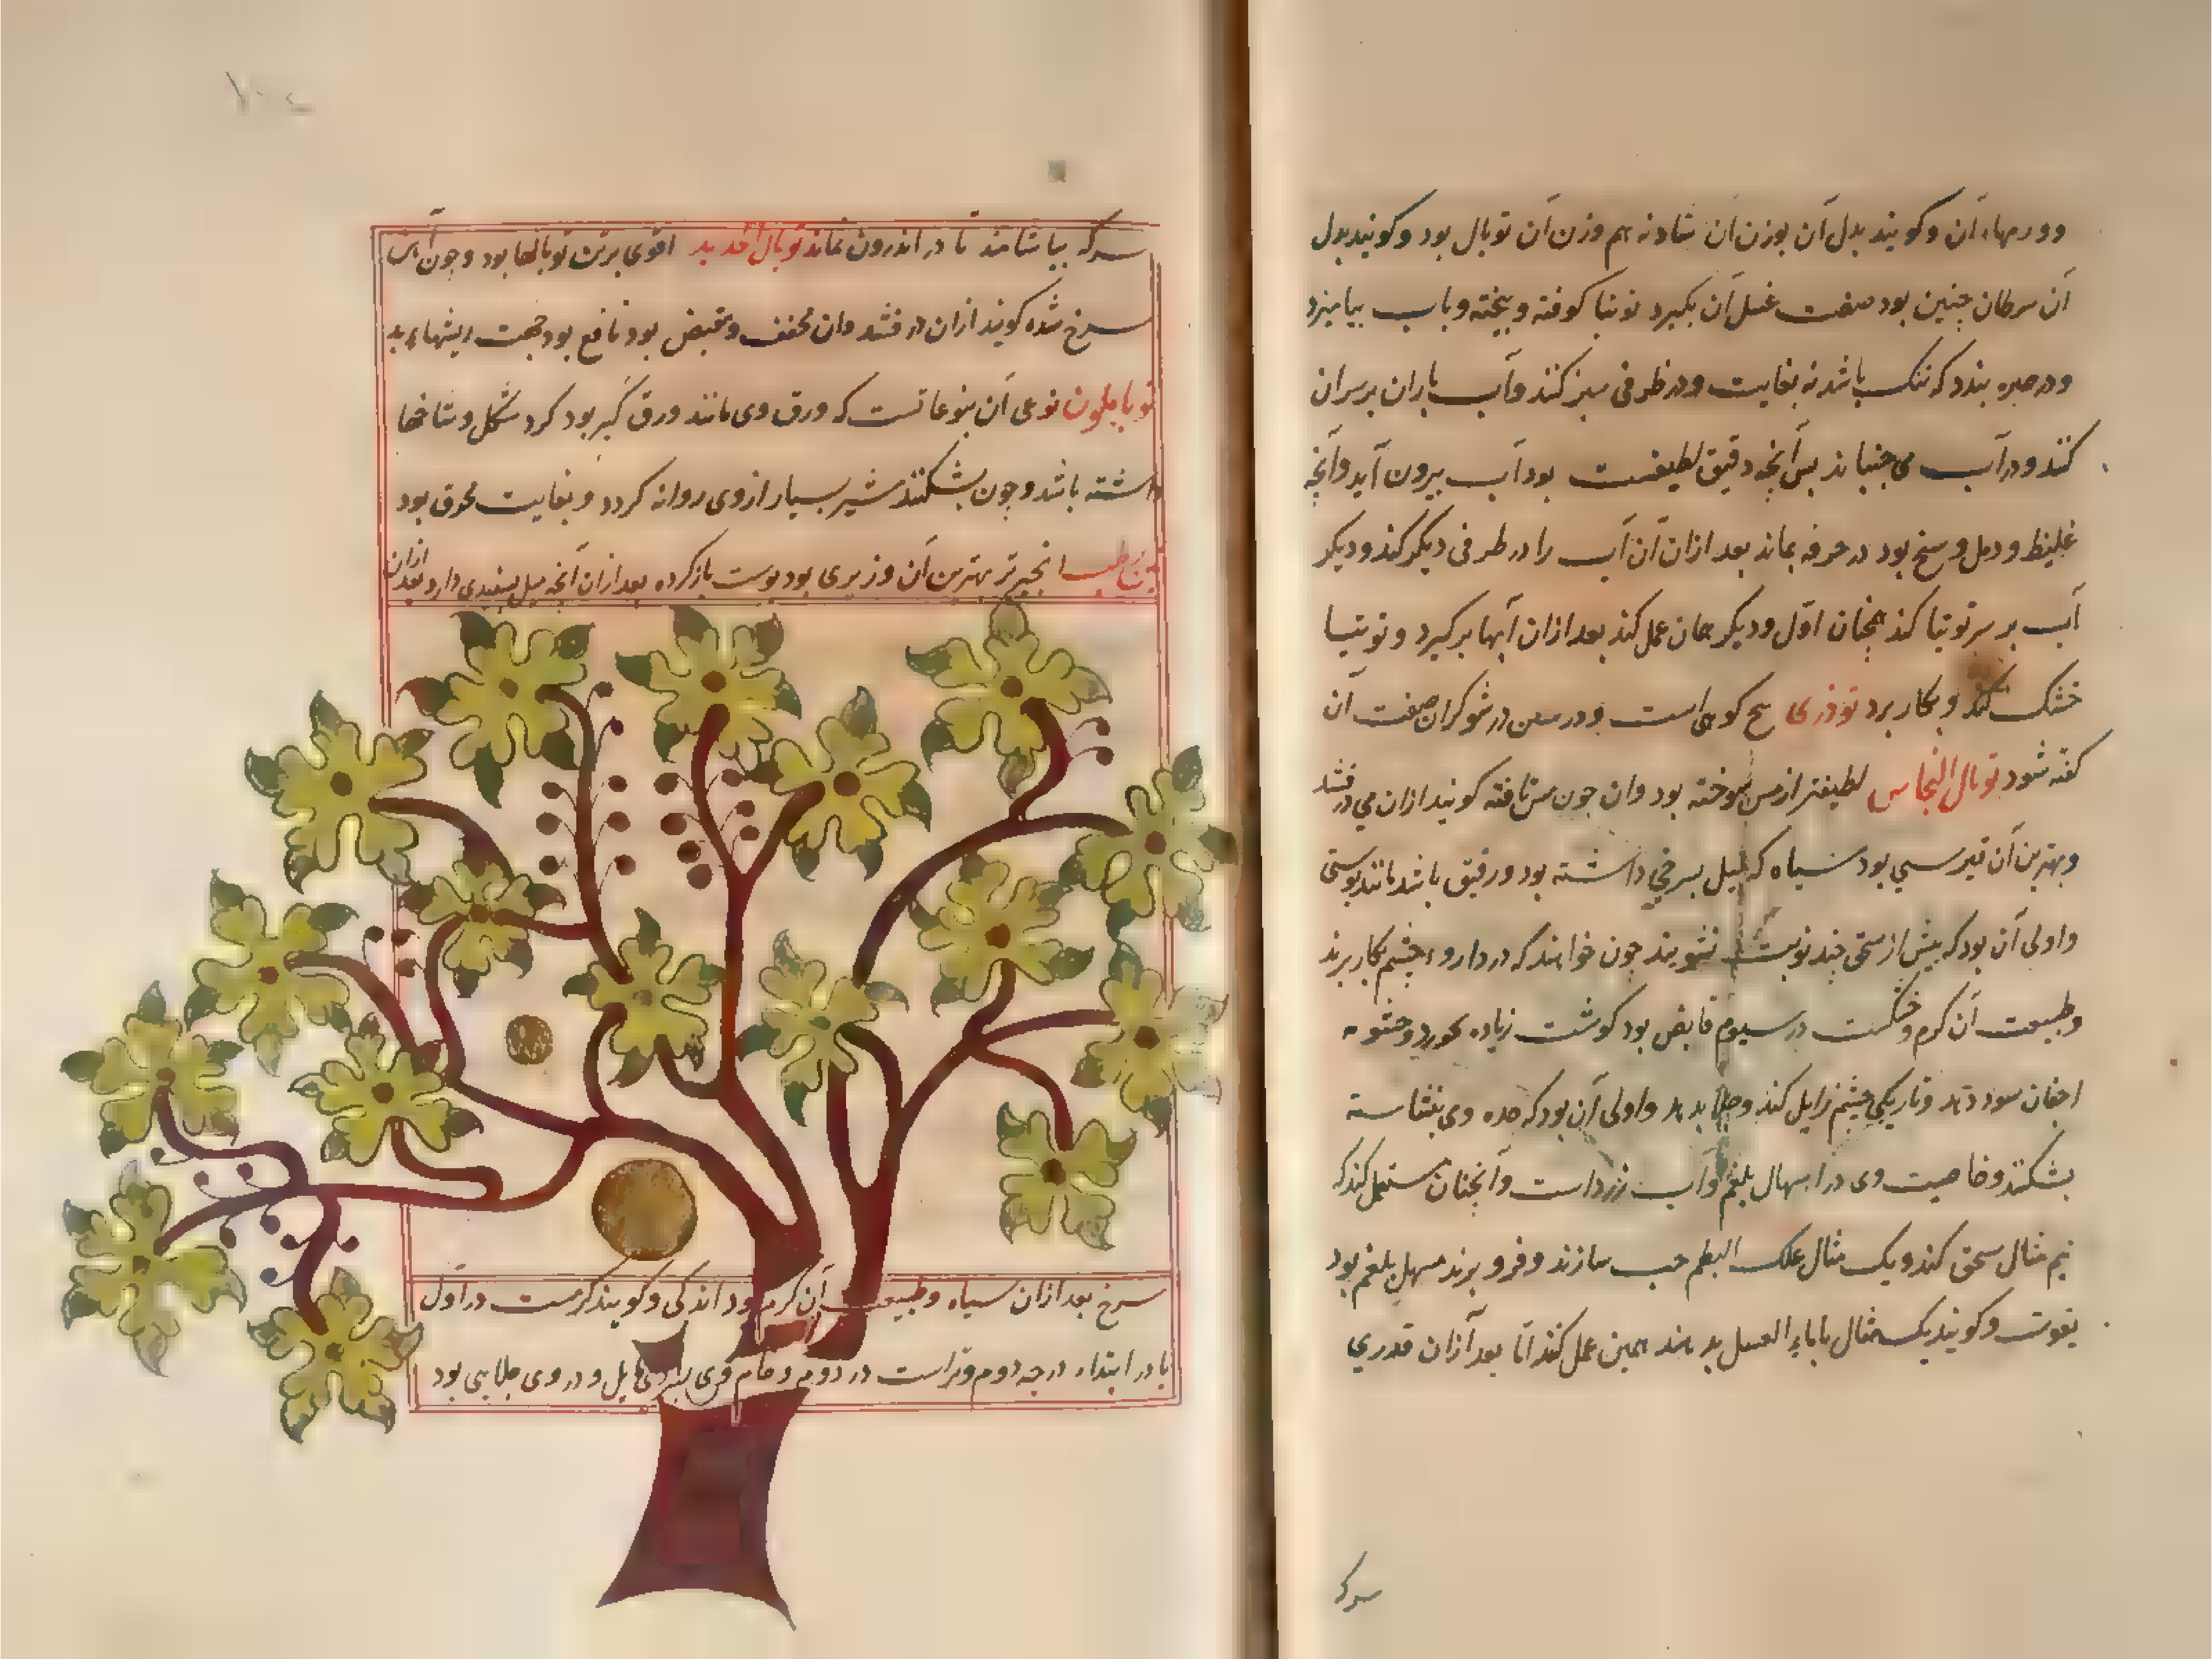 و ورمهاء آن و کویند بدل آن بوزن آن شادنه هم وزن آن توبال بود و کویند بدل
آن سرطان چنین بود صفت غسل آن بکیرد توتیا کوفته و بیخته و باب بیامیزد
و در صره بندد که تنک باشد نه بغایت و در ظرفی سبز کند و آب باران بر سر آن
کند و در آب می جنباند بس آنچه دقیق لطیفست بود آب بیرون آید و آنچه
غلیظ و رمل و وسخ بود در خرفه بماند بعد ازان آن آب را در ظرفی دیگر کند و دیکر
آب بر سر توتیا کند همچنان اول و دیکر همان عمل کند بعد ازان آبها برکیرد و توتیا
خشک کند و بکار برد توذری کوهی است و در شوکران صفت آن
کفته شود توبال النحاس لطیفتر از مس سوخته بود وان جون مس تافته کویند ازان می درفشد
و بهترین آن قبرسی بود سیاه که میل بسرخی داشته بود و رقیق باشد مانند بوستی
و اولی آن بود که بیش از سحق چند نوبت بشویند جون خواهند که در داروء چشم بکار برند
و طبیعت آن کرم و خشکست در سیوم قابض بود کوشت زیاده بخورد و خشونه
اجفان سود دهد و تاریکی چشم زایل کند و جلا بدهد و اولی آن بود که حده وی بنشاسته
بشکنند و خاصیت وی در اسهال بلغم و آب زرد است و آنچنان مستعمل کند که
نیم مثقال سحق کند و یک مثقال علک البطم حب سازند و فرو برند مسهل بلغم بود
بقوت و کویند یک مثقال با ماء العسل بدهند همین عمل کند اما بعد ازان قدری
سرکه
سرکه بیاشامند تا در اندرون نماند توبال الحدید اقوی برین توبالها بود و جون آهن
سرخ شده کویند ازان درفشد وان مجفف و مقبض بود نافع بود جهت ریشهاء بد
نوعی آن یتوعاتست که ورق وی مانند ورق کبر بود کرد شکل و شاخها
داشته باشد و جون بشکنند شیر بسیار از وی روانه کردد و بغایت محرق بود
تین رطب انجیر تر بهترین آن وزیری بود بوست باز کرده بعد ازان آنچه میل بسفیدی دارد بعد ازان
سرخ بعد ازان سیاه و طبیعت آن کرم بود اندکی و کویند کرمست در اول
یا در ابتداء درجه دوم و تر است در دوم و خام وی بسردی مایل و در وی جلایی بود